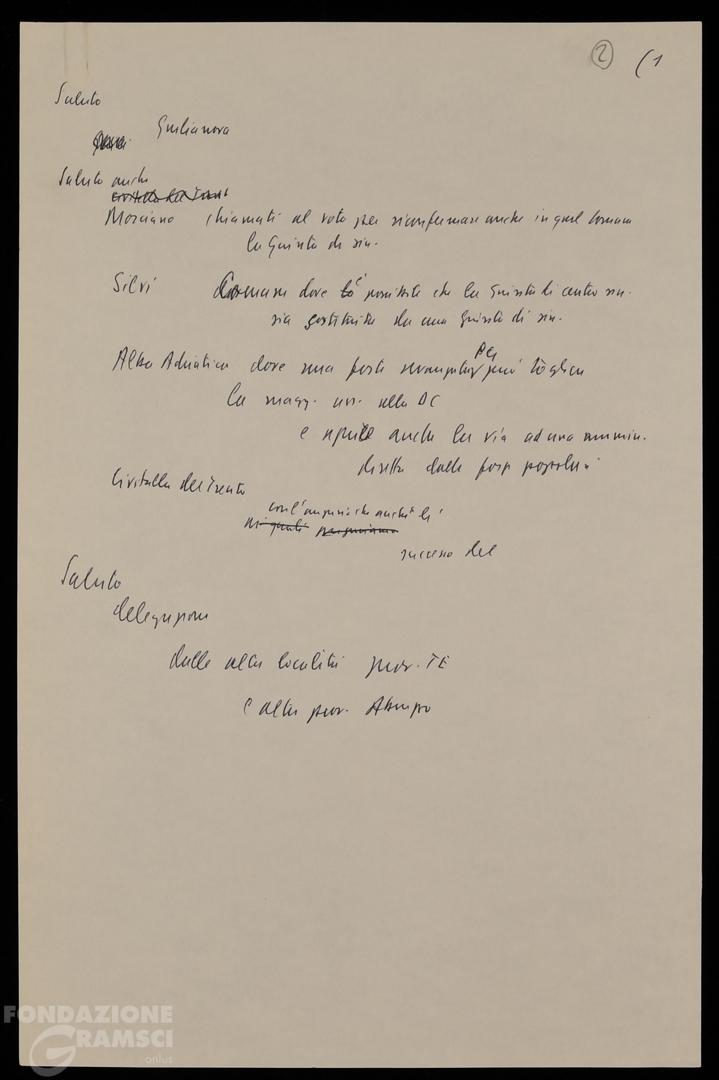 2 (1
Saluto
Giulianova
Saluto anche
Civitella del Tronto
Morciano chiamati al voto per riconfermare anche in quel comune
la Giunta di sin.
Silvi Comune dove è possibile che la Giunta di centro sin.
sia sostituita da una Giunta di sin.
Alba Adriatica dove una forte avanzata PCI può togliere
la magg. ass. alla DC
e aprire anche la via ad una ammin.
diretta dalle forze popolari
Civitella del Tronto
con l'augurio che anche lì
ai quali
successo del
Saluto
delegazioni
dalle altre località prov. TE
e altre prov. Abruzzo
FONDAZIONE
GRAMSCI
onlus